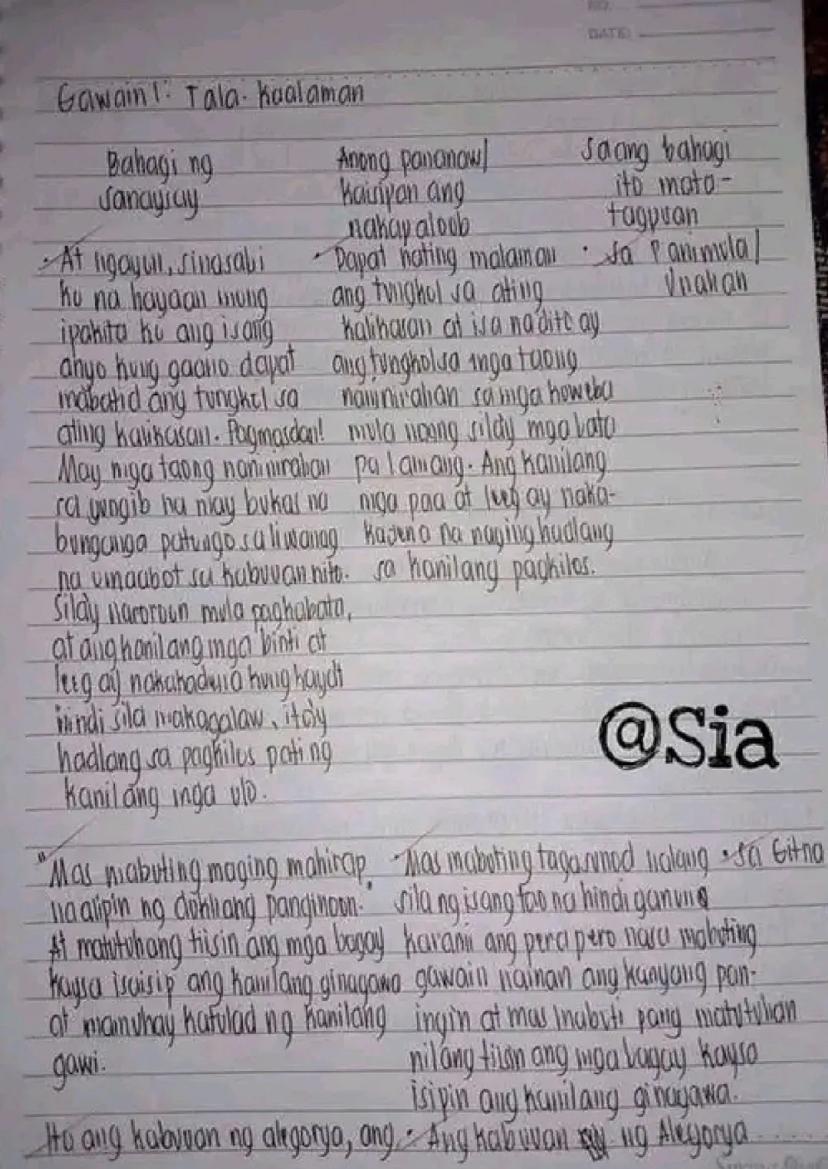 NO.
DATE:
Gawain 1: Tala-kaalaman
Bahagi ng Anong pananaw/ saang bahagi
sanaysay kaisipan ang ito mata-
nakapaloob tagpuan
• At ngayun, sinasabi • Dapat nating malaman • sa Panimula/
ko na hayaan mong ang tungkol sa ating Unahan
ipakita ko ang isang kalikasan at isa na dito ay
anyo kung gaano dapat ang tungkol sa mga taong
mabatid ang tungkol sa naninirahan sa mga koweba
ating kalikasan. Pagmasdan! mula noong sila'y mga bata
May mga taong naninirahan pa lamang. Ang kanilang
sa yungib na may bukas na mga paa at leeg ay naka-
bunganga patungo sa liwanag kadena na naging hudlang
na umaabot sa kabuuan nito. sa kanilang pagkilos.
Sila'y naroroon mula pagkabata,
at ang kanilang mga binti at
leeg ay nakakadena kung kaya't
hindi sila makagalaw, ito'y
hadlang sa pagkilos pati ng
kanilang mga ulo.
@Sia
"Mas mabuting maging mahirap • Mas mabuting tagasunod nalang • sa Gitna
na alipin ng dukhang panginoon." sila ng isang tao na hindi ganung
At matutuhang tiisin ang mga bagay karami ang pera pero nasa mabuting
kaysa isaisip ang kanilang ginagawa gawain naman ang kanyang pan-
at mamuhay katulad ng kanilang ingin at mas mabuti pang matutuhan
gawi. nilang tiisin ang mga bagay kaysa
isipin ang kanilang ginagawa.
Ito ang kabuuan ng alegorya, ang • Ang kabuuan ng Alegorya